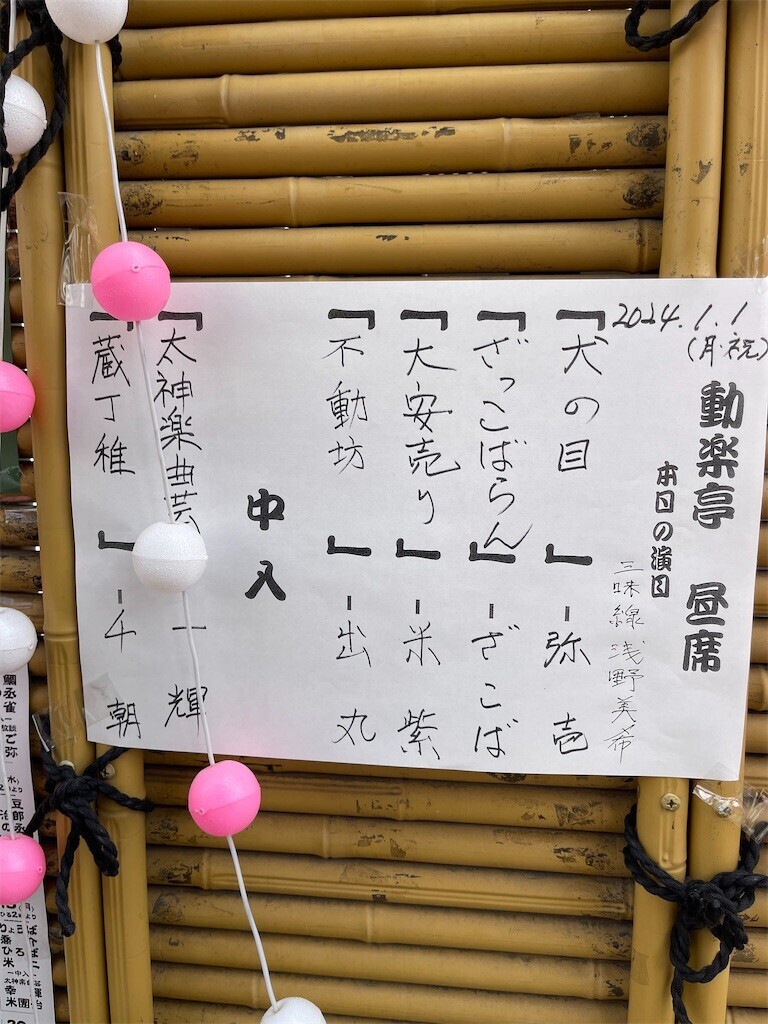 2024.1.1
(月・祝)
動楽亭 昼席
本日の演目
三味線 浅野美希
「犬の目」-弥壱
「ざっこばらん」-ざこば
「大安売り」-米紫
「不動坊」-出丸
中入
「太神楽曲芸 一輝
「蔵丁稚」-千朝